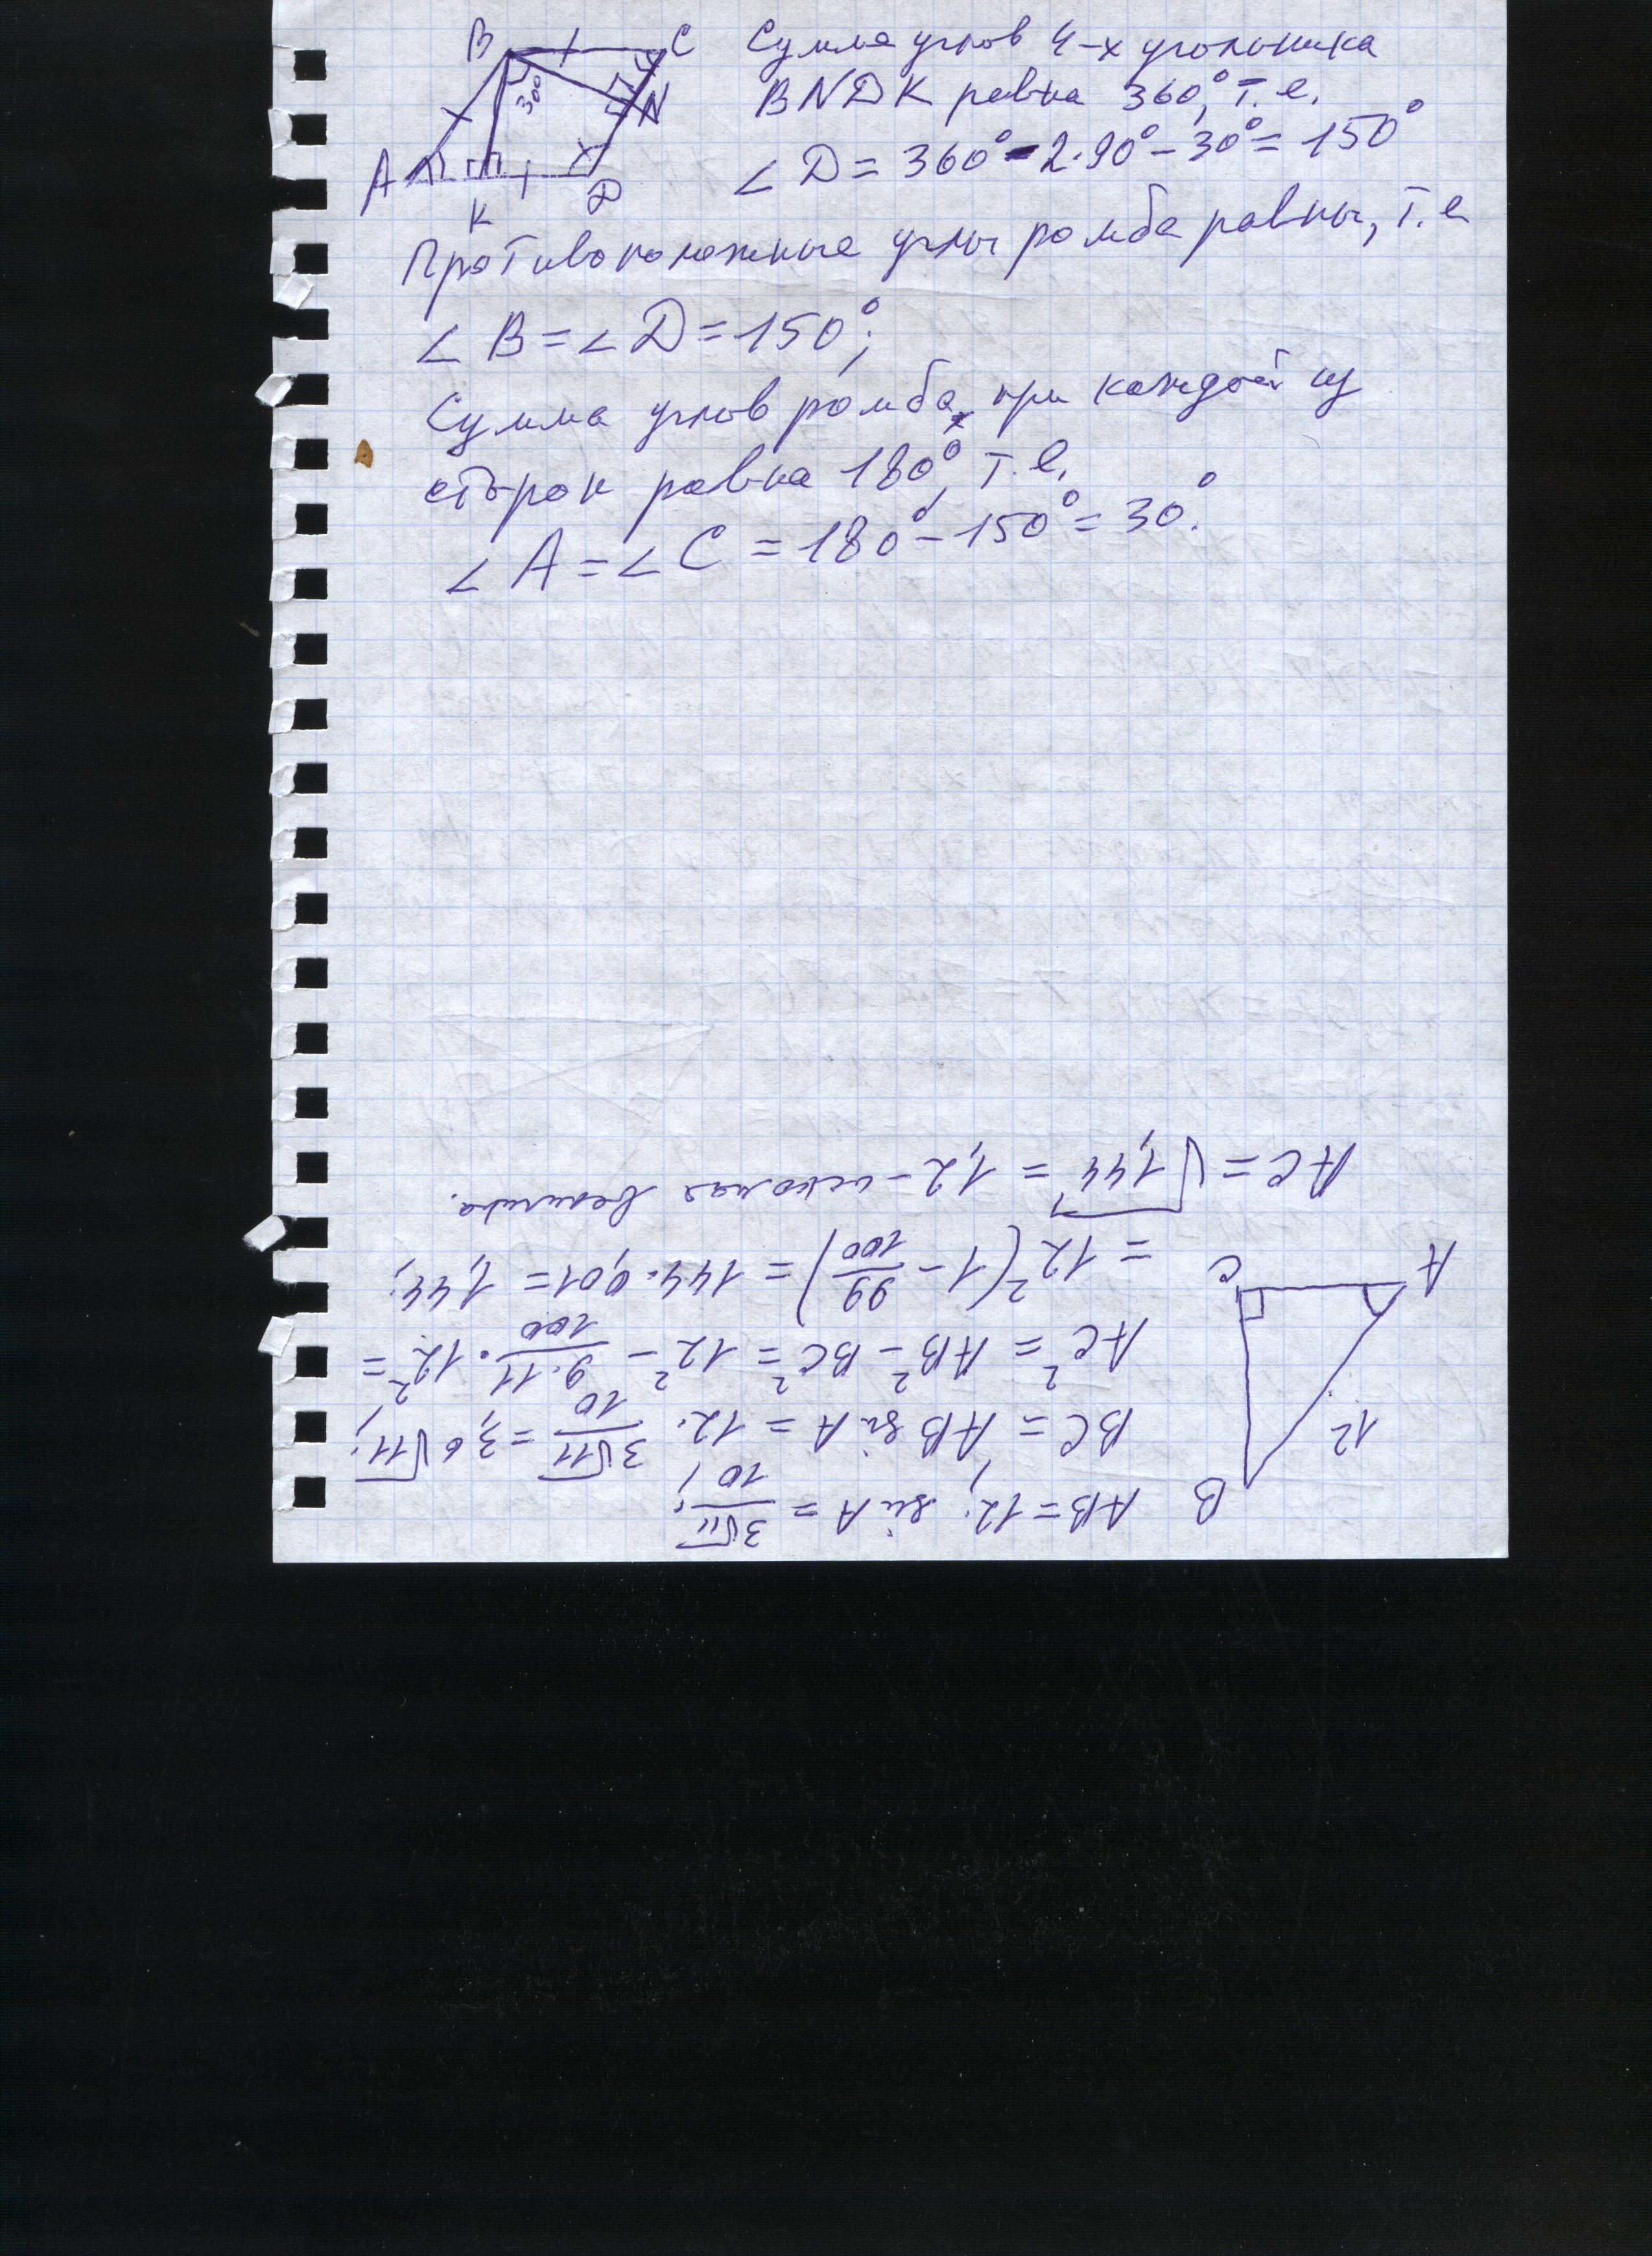 B C
30°
N
A K D
Сумма углов 4-х угольника
BNDK равна 360°, т.е.
∠D = 360° - 2·90° - 30° = 150°
Противоположные углы ромба равны, т.е
∠B = ∠D = 150°;
Сумма углов ромба, при каждой из
сторон равна 180°, т.е.
∠A = ∠C = 180° - 150° = 30°.
B
12
A C
AB = 12; sin A = 3√11/10;
BC = AB sin A = 12 · 3√11/10 = 3,6√11;
AC² = AB² - BC² = 12² - 9·11/100 · 12² =
= 12²(1 - 99/100) = 144·0,01 = 1,44;
AC = √1,44 = 1,2 - искомая величина.